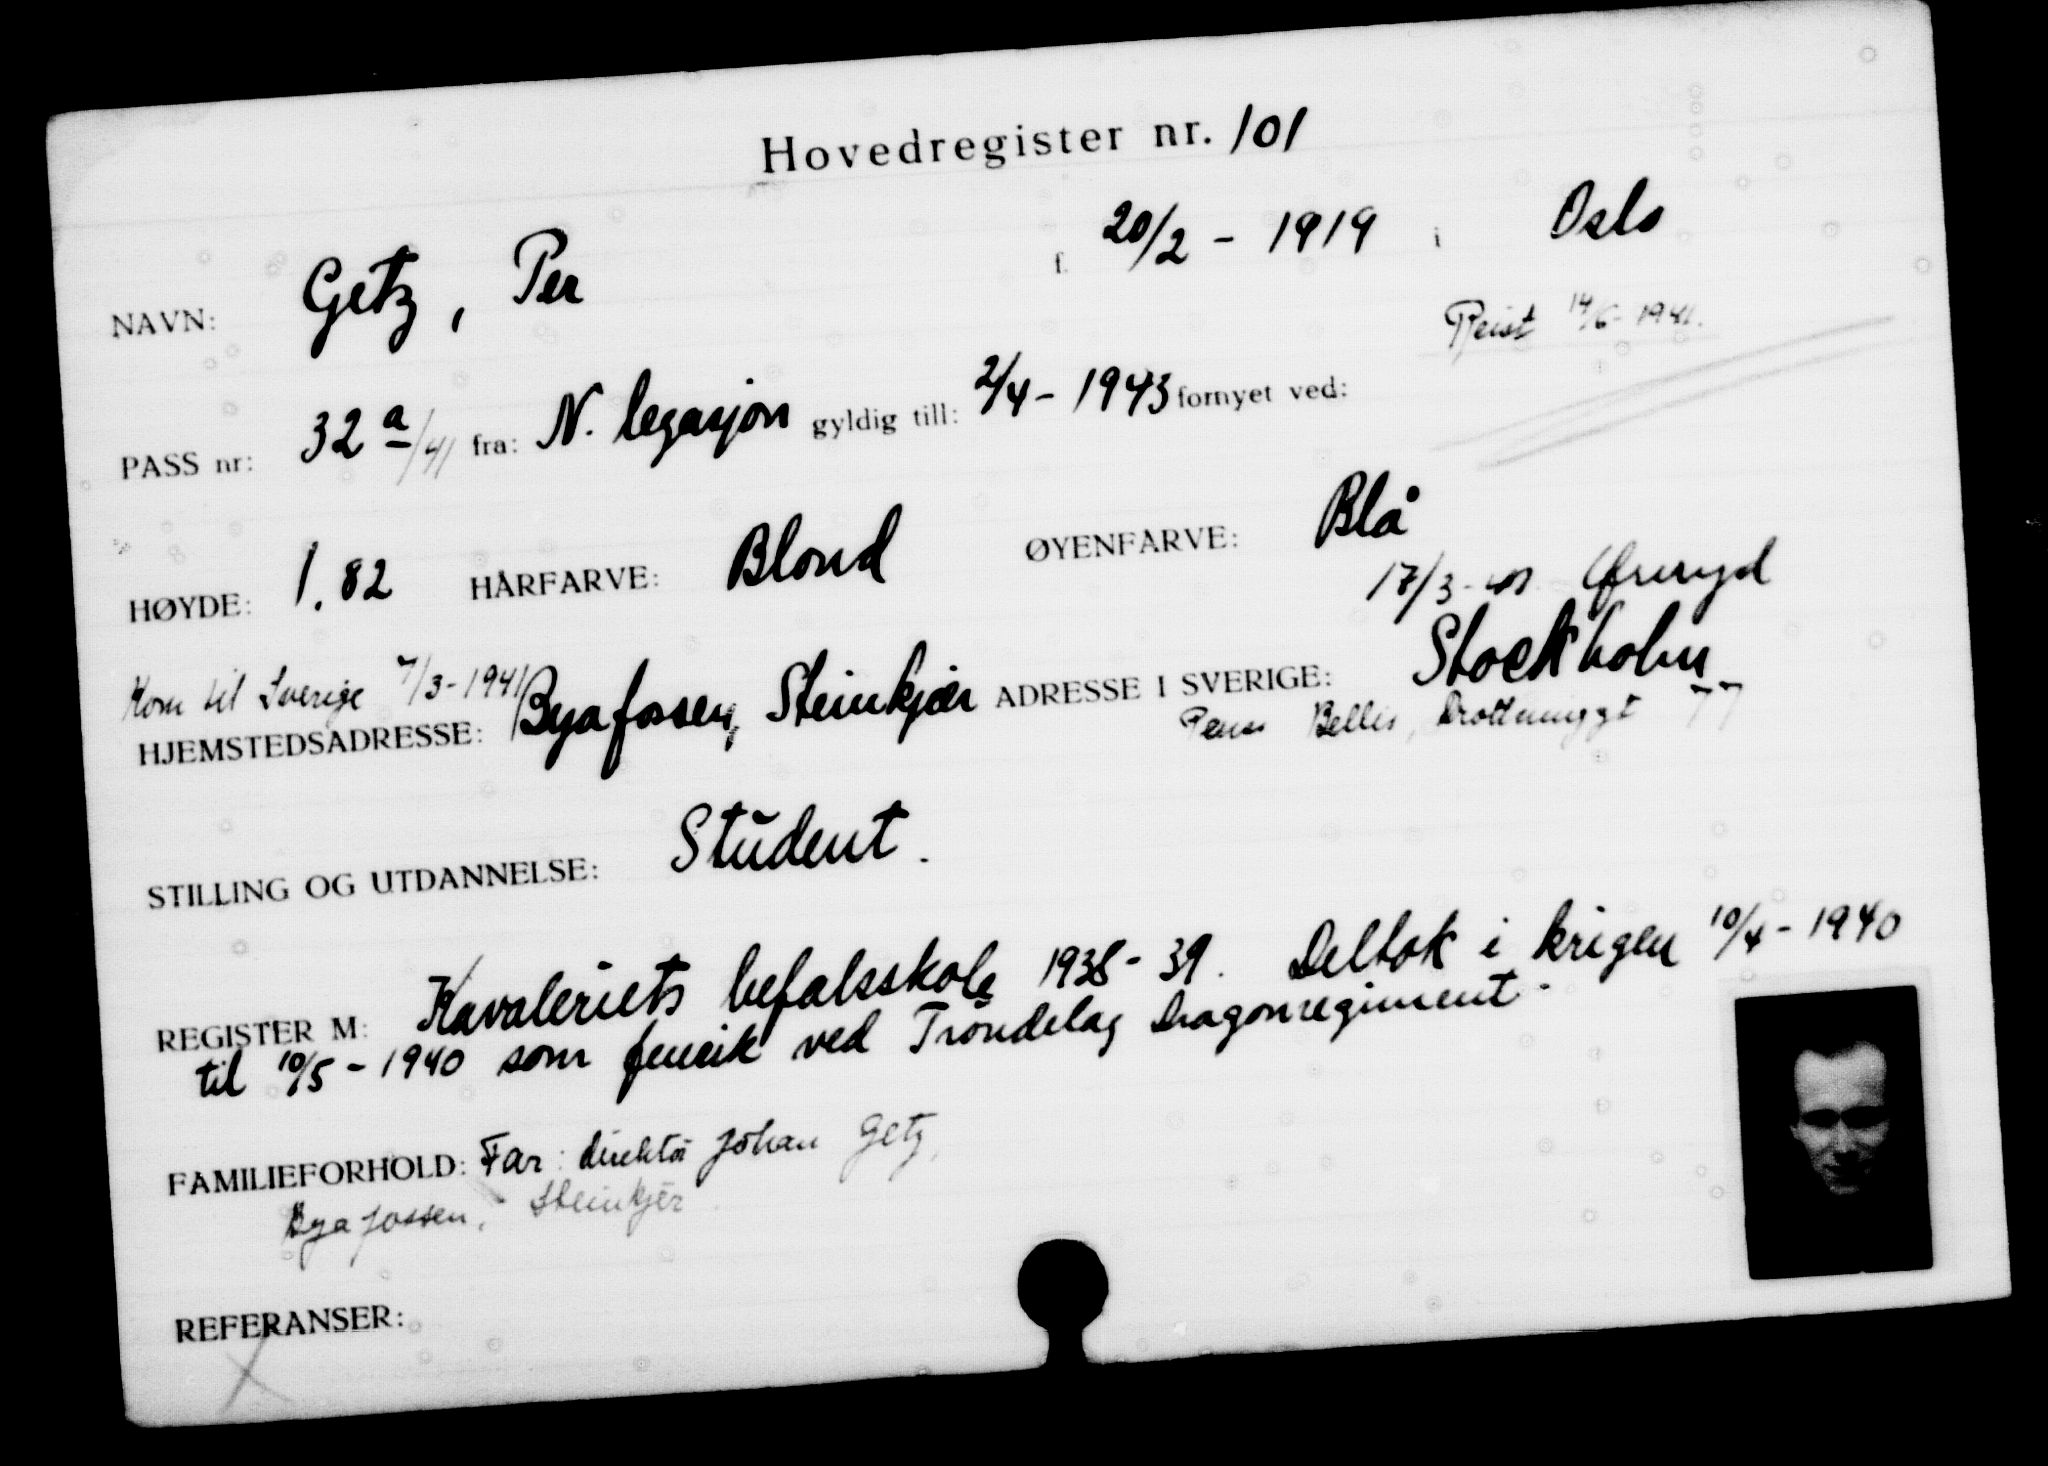 Hovedregister nr. 101
NAVN: Getz, Per f. 20/2 - 1919 i Oslo
Reist 14/6 - 1941.
PASS nr: 32 a/41 fra: N. legasjon gyldig till: 2/4 - 1943 fornyet ved:
HØYDE: 1.82 HÅRFARVE: Blond ØYENFARVE: Blå
17/3 - 41 Øreryd
Kom til Sverige 7/3 - 1941
HJEMSTEDSADRESSE: Byafossen, Steinkjær ADRESSE I SVERIGE: Stockholm
Pens Bellis, Drottninggt 77
STILLING OG UTDANNELSE: Student.
REGISTER M: Kavaleriets befalsskole 1938 - 39. Deltok i krigen 10/4 - 1940
til 10/5 - 1940 som fenrik ved Trøndelag Dragonregiment.
FAMILIEFORHOLD: Far: direktør Johan Getz,
Byafossen, Steinkjer
REFERANSER: